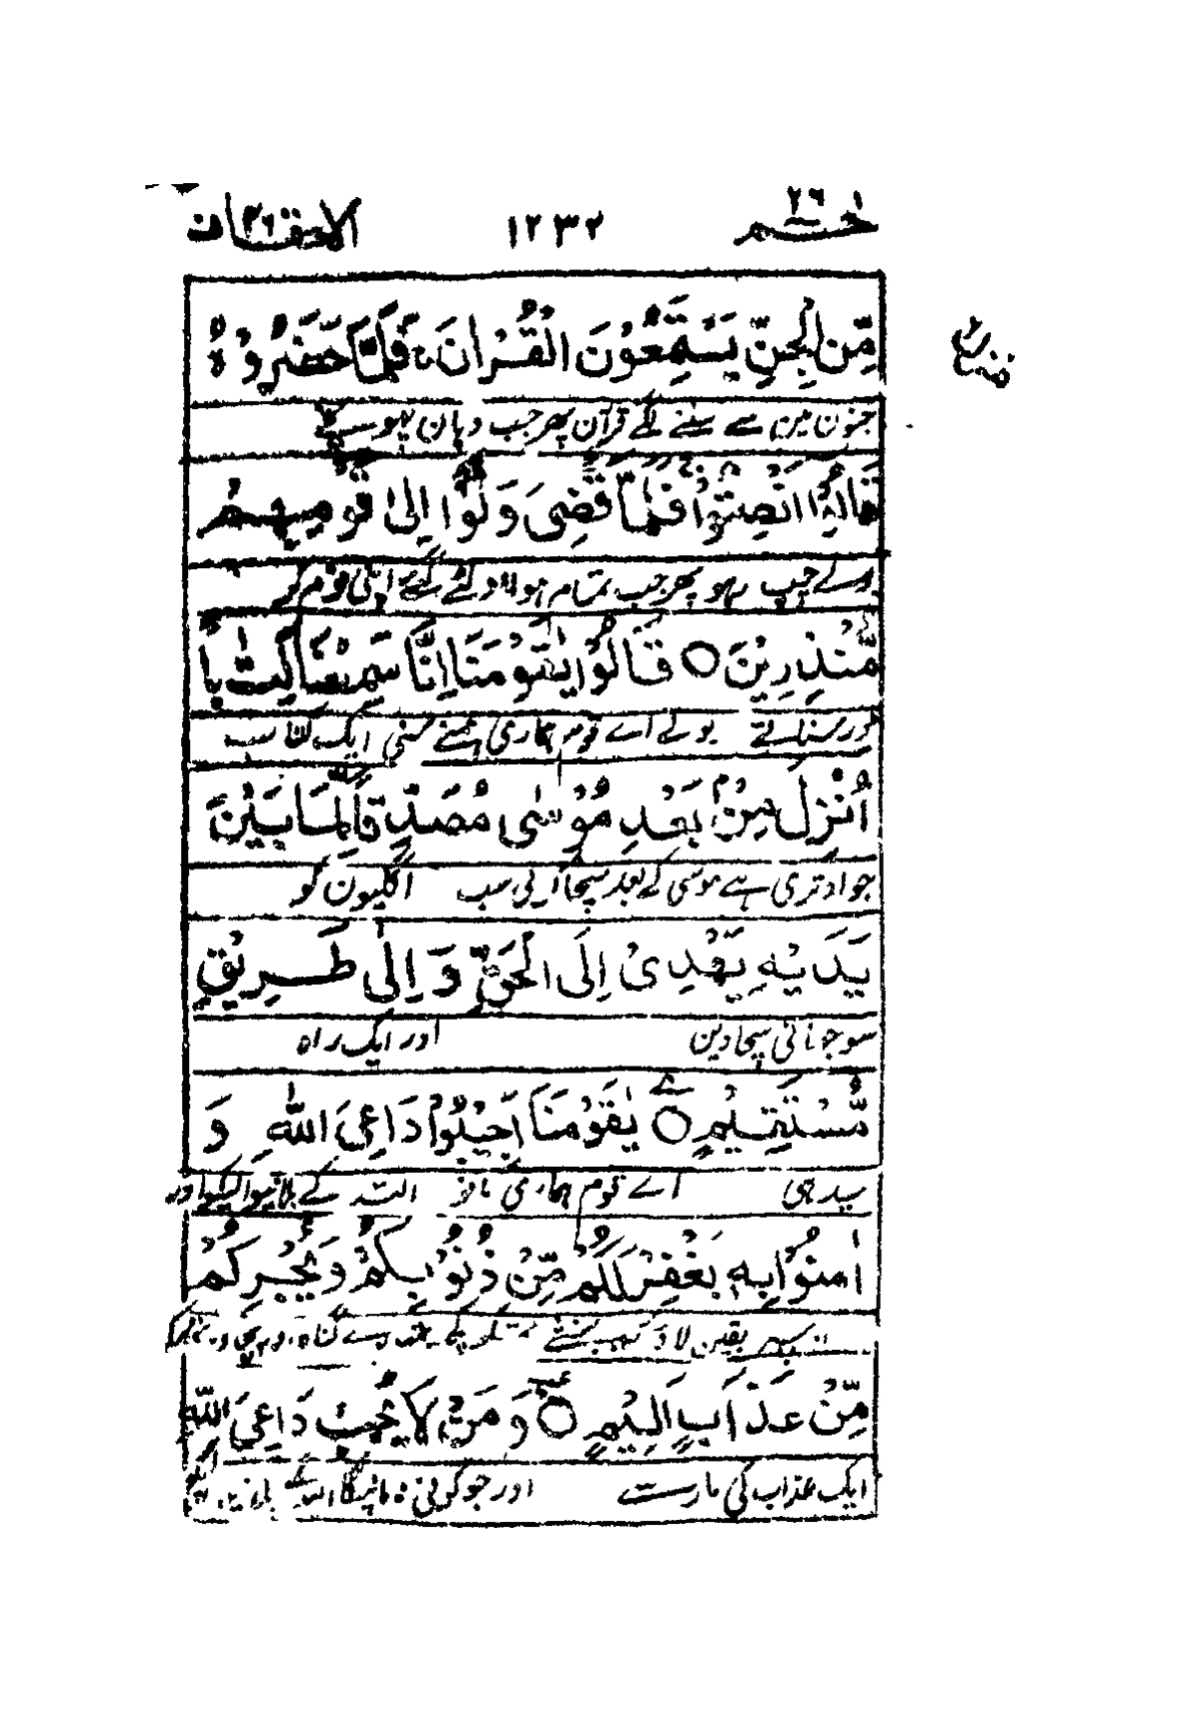 حٰم ٢٦ ١٢٣٢ الاحقاف ٤٦
مِّنَ الْجِنِّ يَسْتَمِعُوْنَ الْقُرْاٰنَ ۚ فَلَمَّا حَضَرُوْهُ
جنون مین سے سننے لگے قرآن پھر جب وہان پہونچے
قَالُوْٓا اَنْصِتُوْا ۚ فَلَمَّا قُضِیَ وَلَّوْا اِلٰی قَوْمِهِمْ
بولے چپ رہو پھر جب تمام ہوا اولٹے گئے اپنی قوم کو
مُّنْذِرِیْنَ ○ قَالُوْا یٰقَوْمَنَآ اِنَّا سَمِعْنَا كِتٰبًا
ڈر سناتے بولے اے قوم ہماری ہمنے سنی ایک کتاب
اُنْزِلَ مِنْۢ بَعْدِ مُوْسٰی مُصَدِّقًا لِّمَا بَیْنَ
جو اوتری ہے موسیٰ کے بعد سچا کرتی سب اگلیون کو
یَدَیْهِ یَهْدِیْٓ اِلَی الْحَقِّ وَ اِلٰی طَرِیْقٍ
سوجھاتی سچا دین اور ایک راہ
مُّسْتَقِیْمٍ ○ یٰقَوْمَنَآ اَجِیْبُوْا دَاعِیَ اللّٰهِ وَ
سیدھی اے قوم ہماری مانو اللہ کے بلانیوالیکو اور
اٰمِنُوْا بِهٖ یَغْفِرْ لَكُمْ مِّنْ ذُنُوْبِكُمْ وَیُجِرْكُمْ
یقین لاؤ کہ بخشے تمکو کچھ تمہارے گناہ اور
مِّنْ عَذَابٍ اَلِیْمٍ ○ وَ مَنْ لَّا یُجِبْ دَاعِیَ اللّٰهِ
ایک عذاب کی مار سے اور جو کوئی نہ مانیگا اللہ کے